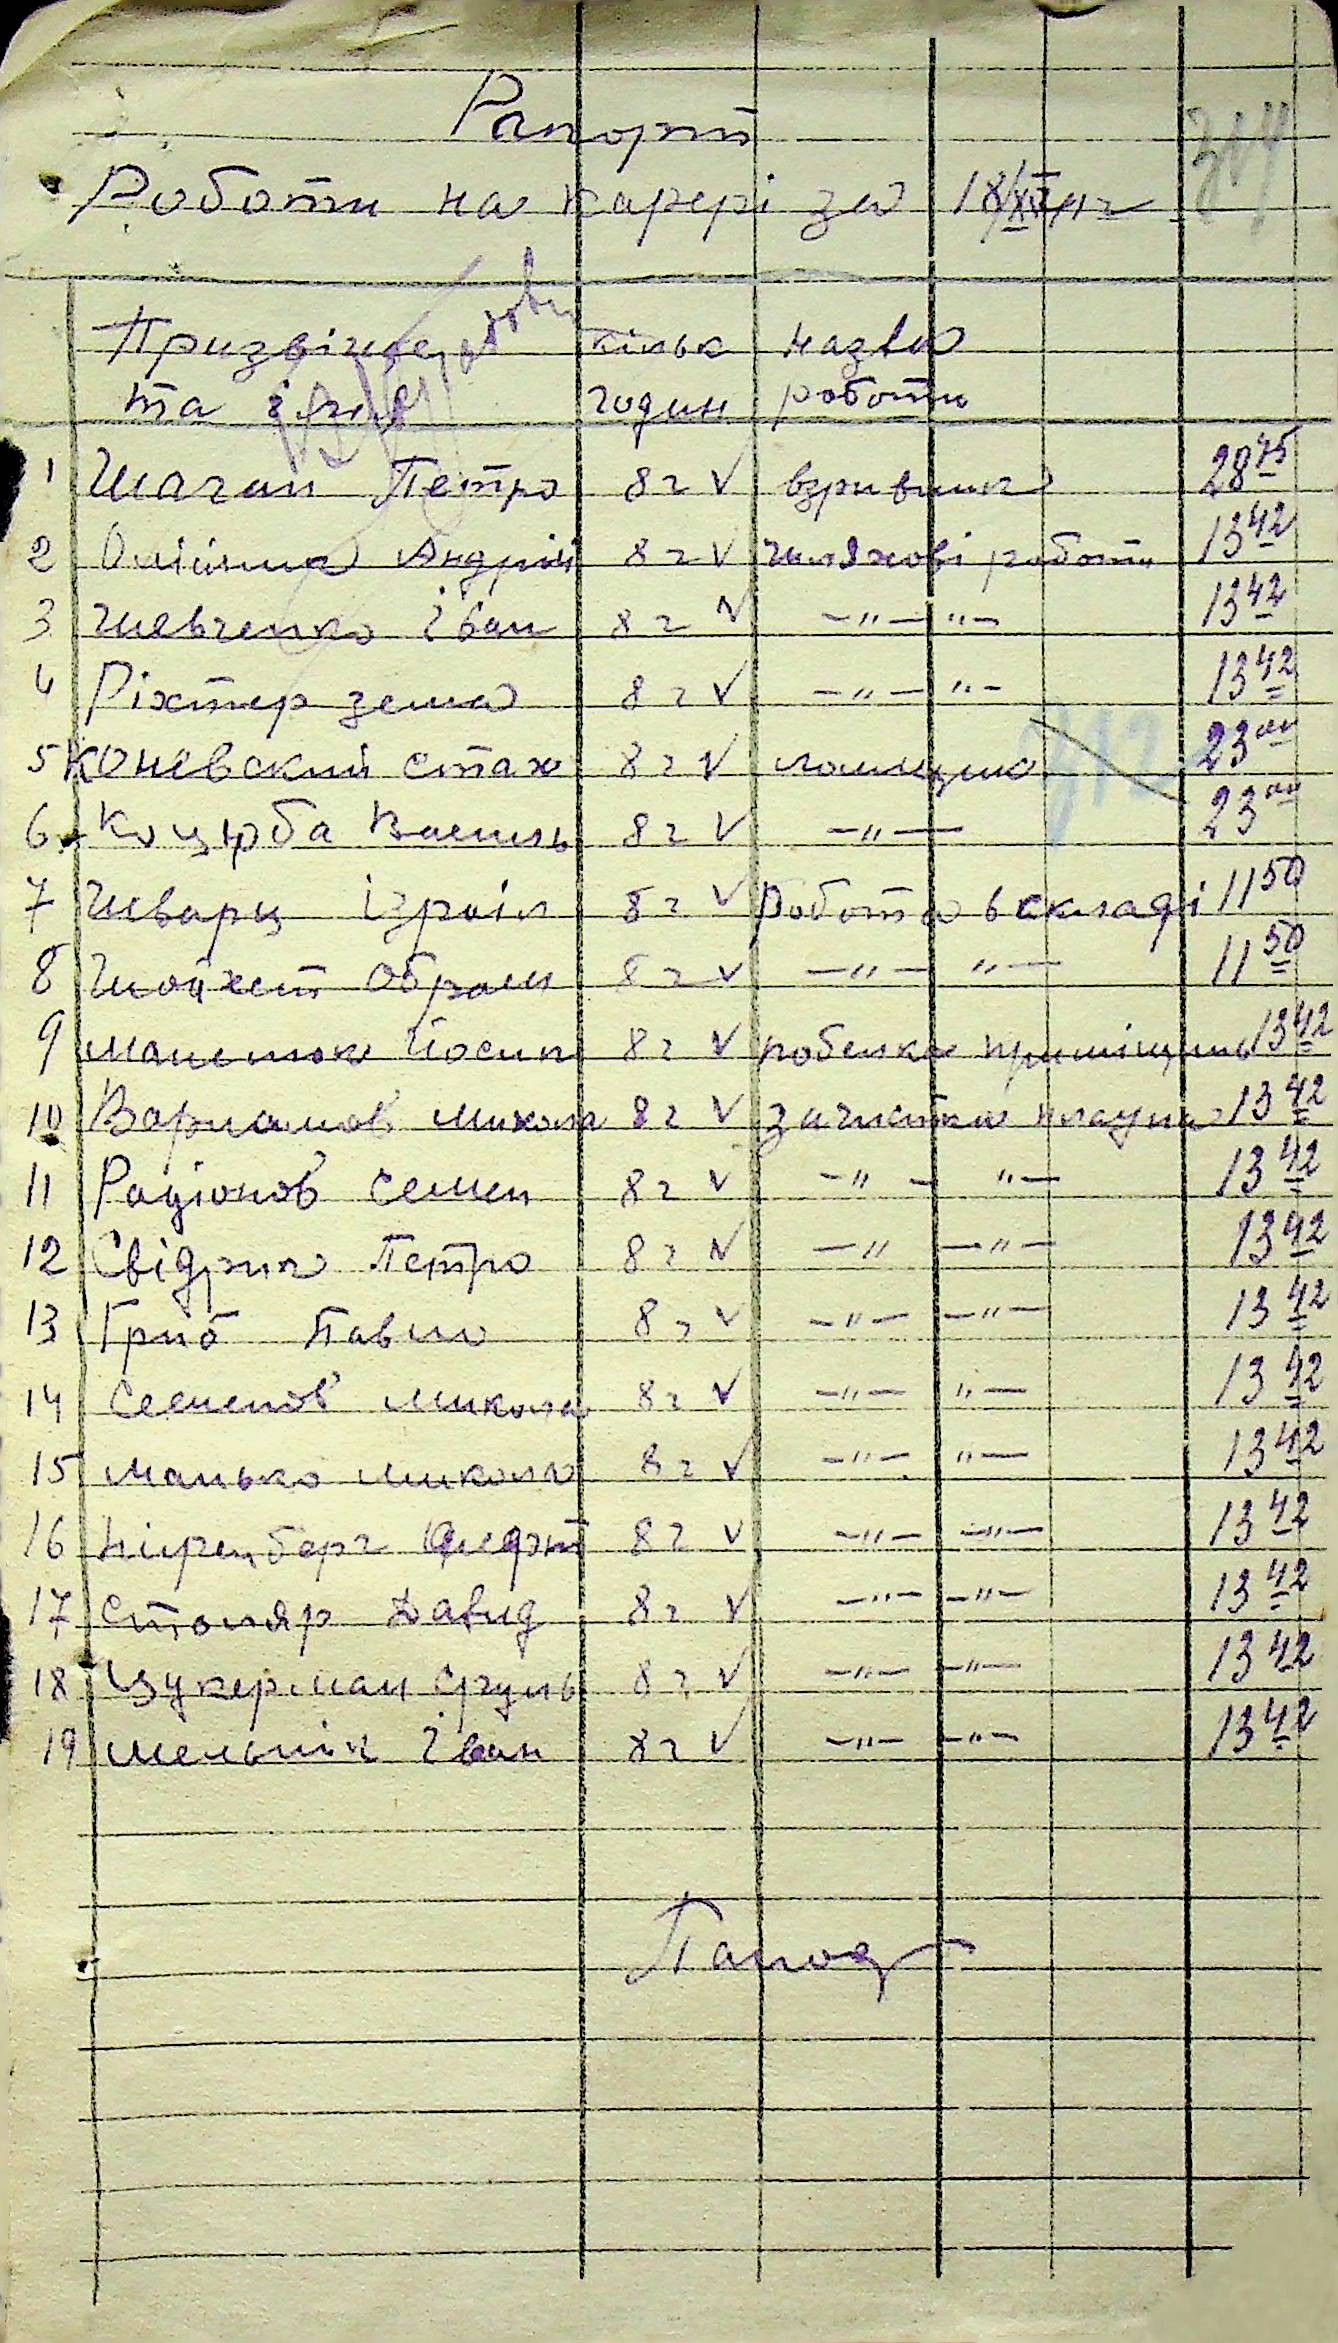 Рапорт
Роботи на карері за 18/XII 41 г
314
Призвіще кільк назва
та імя годин роботи
1 Шаган Петро 8 г V взривник 28 75
2 Андрій 8 г V шляхові роботи 13 42
3 Шевченко Іван 8 г V –"– "– 13 42
4 Ріхтер зема 8 г V –"– "– 13 42
5 Коневский стах 8 г V 23 00
6 Коцюба Василь 8 г V –"– 23 00
7 Шварц ізраіл 8 г V Робота в складі 11 50
8 Шойхет Обрам 8 г V –"– "– 11 50
9 Манелюк Йосип 8 г V побелка приміщень 13 42
10 Варламов микола 8 г V зачистка 13 42
11 Радіонов Семен 8 г V –"– "– 13 42
12 Свідрик Петро 8 г V –"– –"– 13 42
13 Гриб Павло 8 г V –"– –"– 13 42
14 Семенов микола 8 г V –"– "– 13 42
15 манько микола 8 г V –"– "– 13 42
16 Ніренберг 8 г V –"– –"– 13 42
17 Столяр Давид 8 г V –"– –"– 13 42
18 Цукерман Сруль 8 г V –"– –"– 13 42
19 мельнік Іван 8 г V –"– –"– 13 42